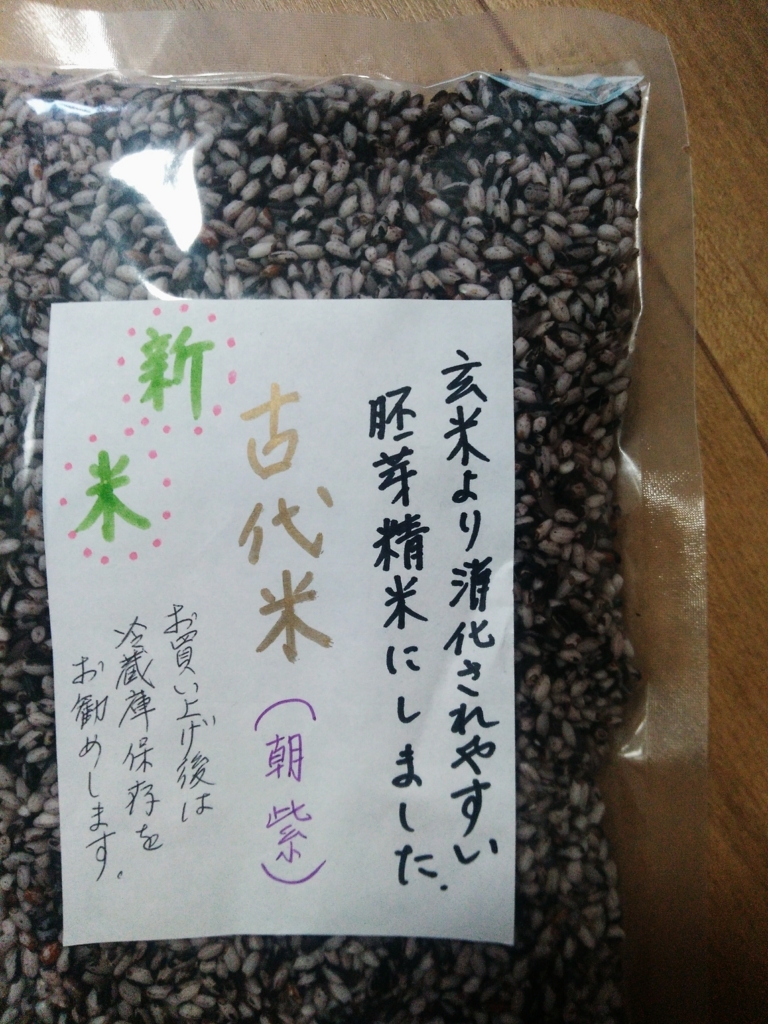 玄米より消化されやすい
胚芽精米にしました.
古代米(朝紫)
新米
お買い上げ後は
冷蔵庫保存を
お勧めします.